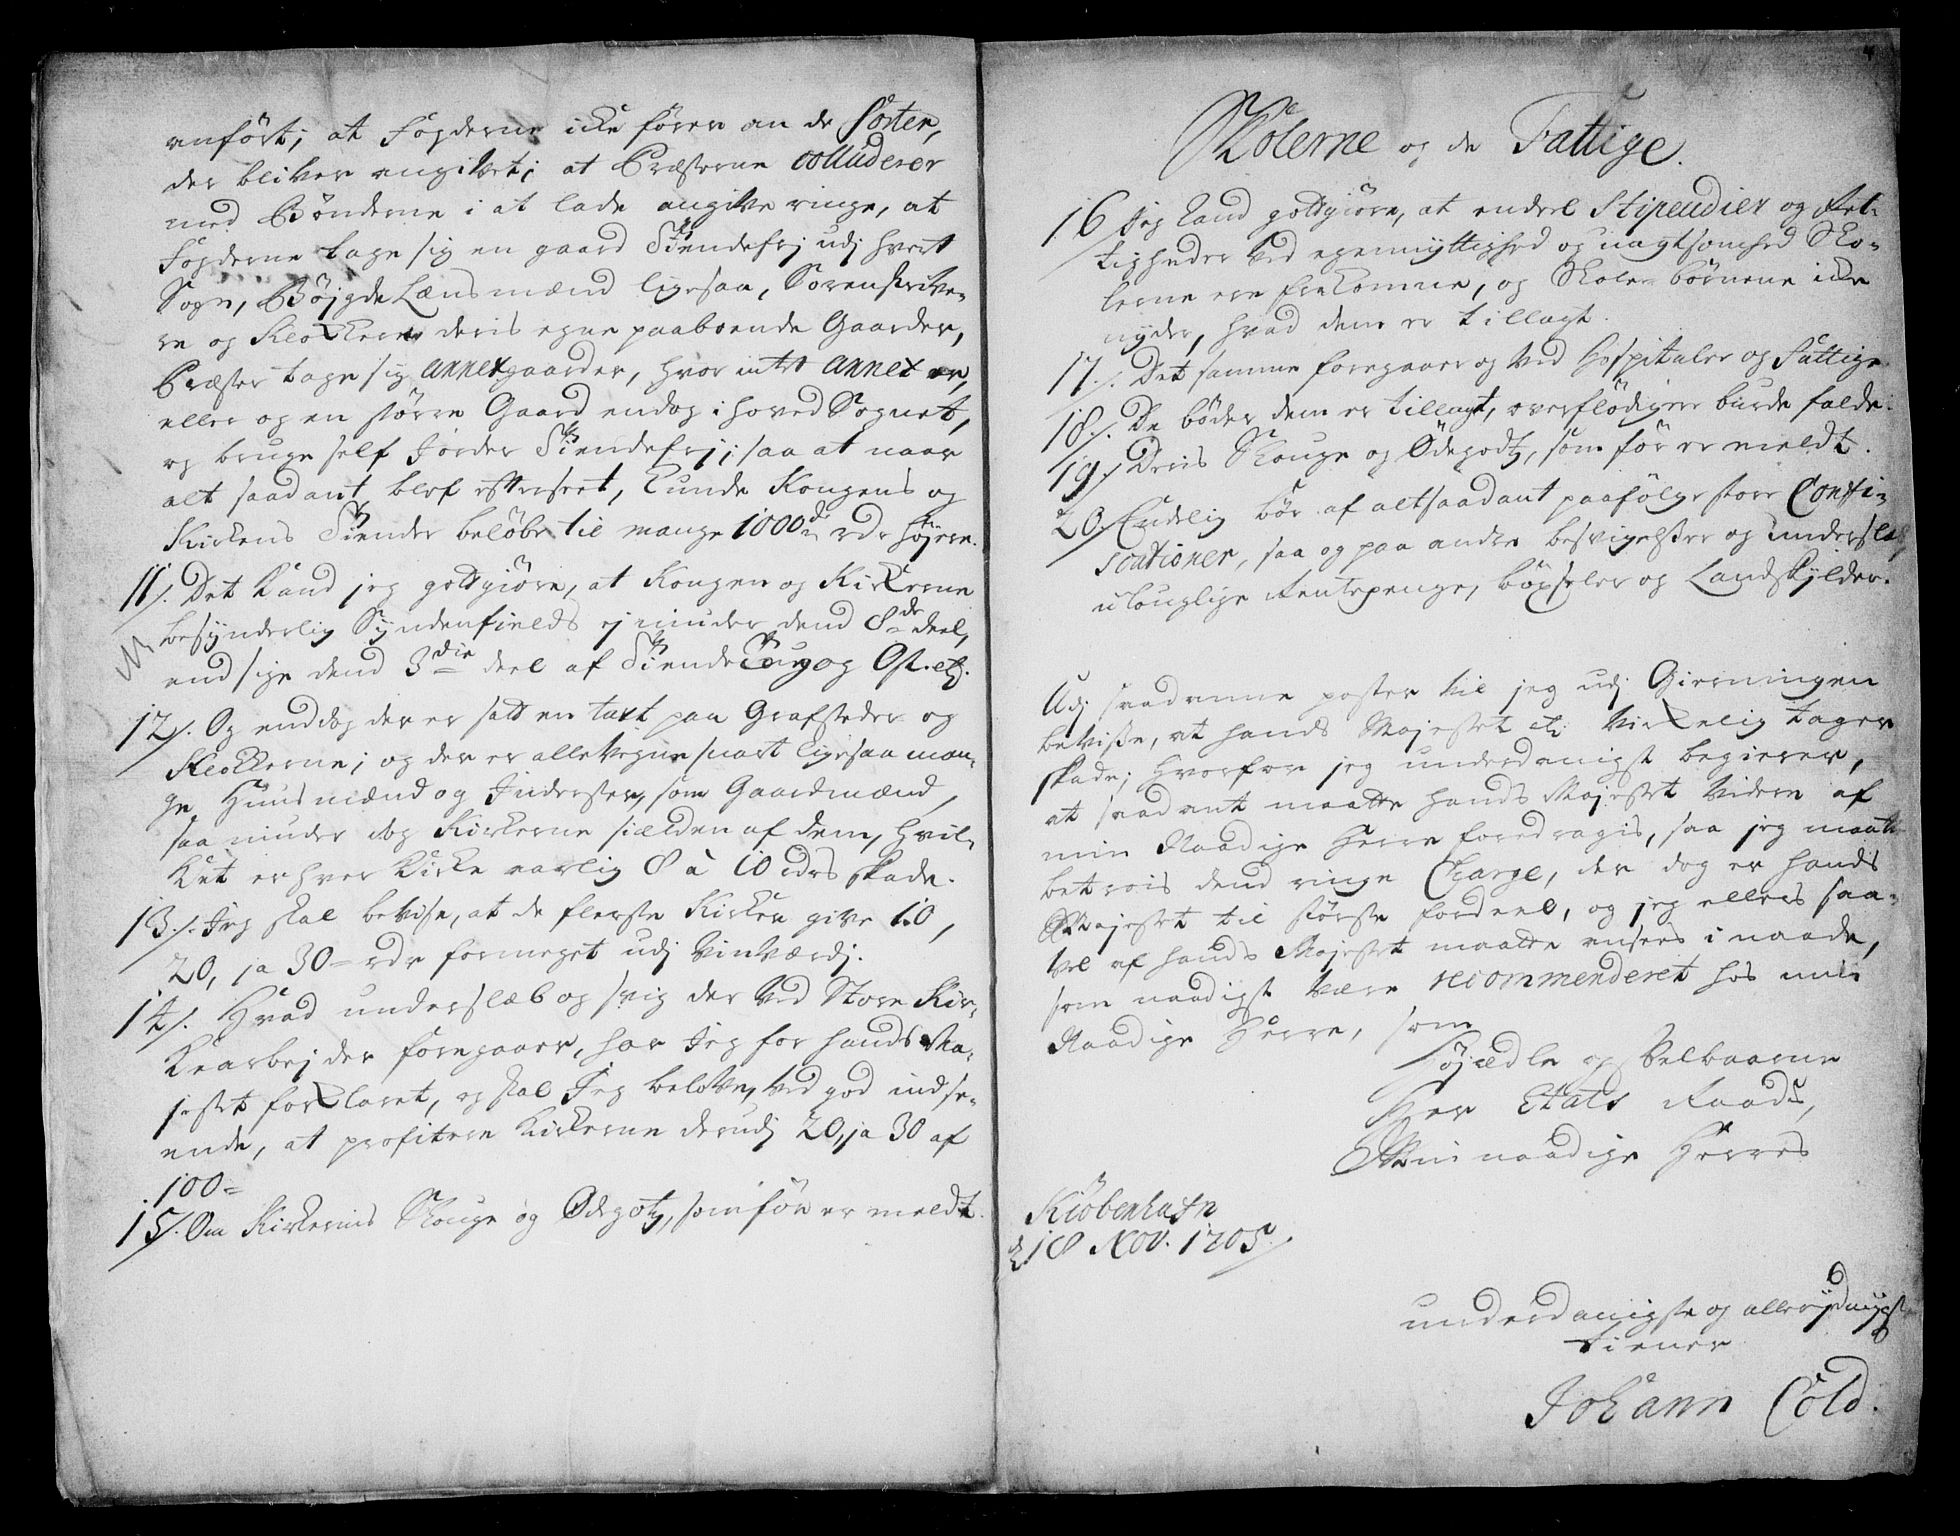 anført; at Fogderne icke fører an de Sorter,
der bliver angivet; at Præsterne colluderer
med Bønderne i at lade angive ringe, at
Fogderne tage sig en gaard Tiendefrj udj hvert
Sogn, Bøjgde Lænsmænd ligesaa, Sorenskrive-
re og Klockere deris egne paaboende Gaarder,
Præster tage sig annexgaarder, hvor intet annex er,
eller og en større Gaard endog i hoved Sognet,
og bruge self Jorder Tiendefrj; saa at naar
alt saadant blef efterseet, kunde Kongens og
Kirkens Tiender beløbe til mange 1000de rdr højere.
11/. Det kand jeg gottgiøre, at Kongen og Kirkerne
besynderlig Syndenfields ej niuder dend 8de deel,
end sige dend 3die deel af Tiende og Ost etc.
12/. Og enddog der er satt en taxt paa Grafsteder og
Klockerne; og der er allevegne snart ligesaa man-
ge Huusmænd og Inderster, som Gaardmænd,
saa niuder dog Kirkerne sielden af dem, hvil-
ket er hver Kirke aarlig 8 à 10 rdrs skade.
13/. Jeg skal bevise, at de fleeste Kirker give 10,
20, ja 30 rdr formeget udj Vinværdj.
14/. Hvad underslæb og svig der ved Store Kir-
kearbejder foregaaer, har Jeg for hands Ma-
jestet forklaret, og skal Jeg belove, ved god indse-
ende, at profitere Kirkerne derudj 20, ja 30 af
100
15/. Om Kirkernis Skouge og Ødegotz, som før er meldt.
Skolerne og de Fattige.
16 Jeg kand gottgiøre, at endeel Stipendier og Ret-
tigheder ved egennyttighed og uagtsomhed Sko-
lerne ere frakomne, og Skole-børnene icke
nyder, hvad dem er tillagt.
17/. Det samme foregaaer og ved Hospitaler og Fattige
18/. De bøder dem er tillagt, overflødigere burde falde.
19/ Deris Skouge og Ødegodtz, som før er meldt.
20/ Endelig bør af altsaadant paafølge store Confi-
scationer, saa og paa andre besvigelser og underslæb,
ulouglige Rentepenge, bøxseler og Landskylder.
Udj saadanne poster vil jeg udj Gierningen
bevise, at hands Majestet virkelig tager
skade; hvorfor jeg underdanigst begierer,
at saadant maatte hands Majestet videre af
min Naadige Herre foredragis, saa jeg maatte
betrois dend ringe Charge, der dog er hands
Majestet til største fordeel, og jeg ellers saa-
vel af hands Majestet maatte ansees i naade,
som naadigst være recommenderet hos min
Naadige Herre, som
Højædle og Velbaarne
Her Etats Raads,
Min naadige Herres
Kiøbenhafn
d. 18 Nov. 1705.
underdanigste og allerydmygste
tiener
Johann Cold.